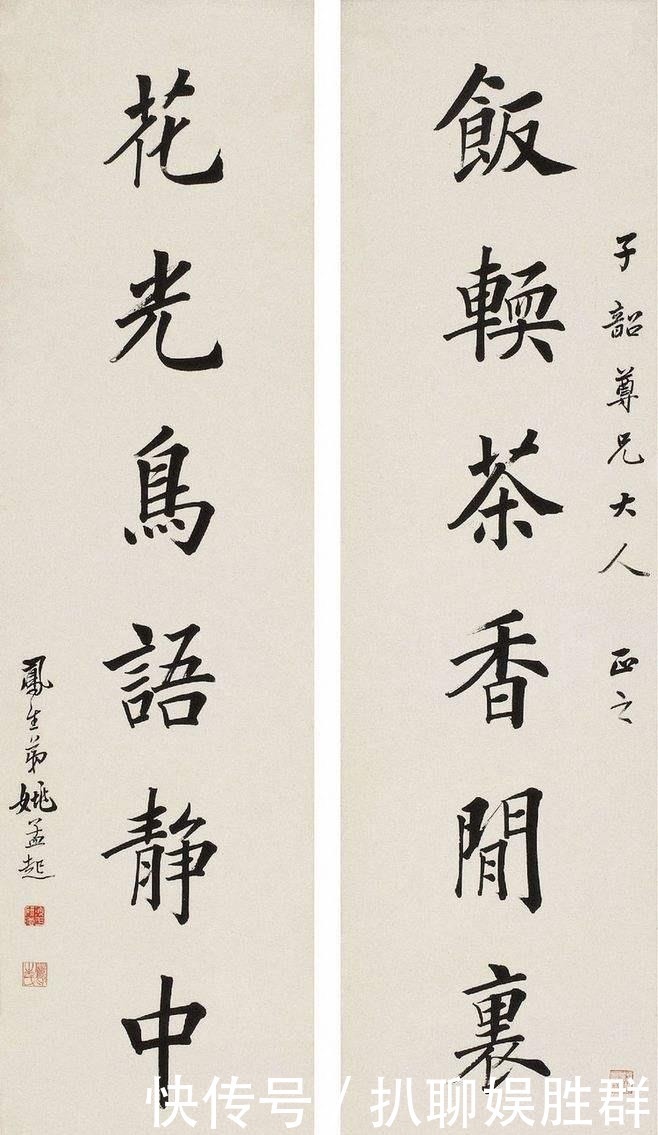 子韶尊兄大人 正之
飯輭茶香閒裏
花光鳥語静中
鳳生弟姚孟起
快传号/扒聊娱胜群